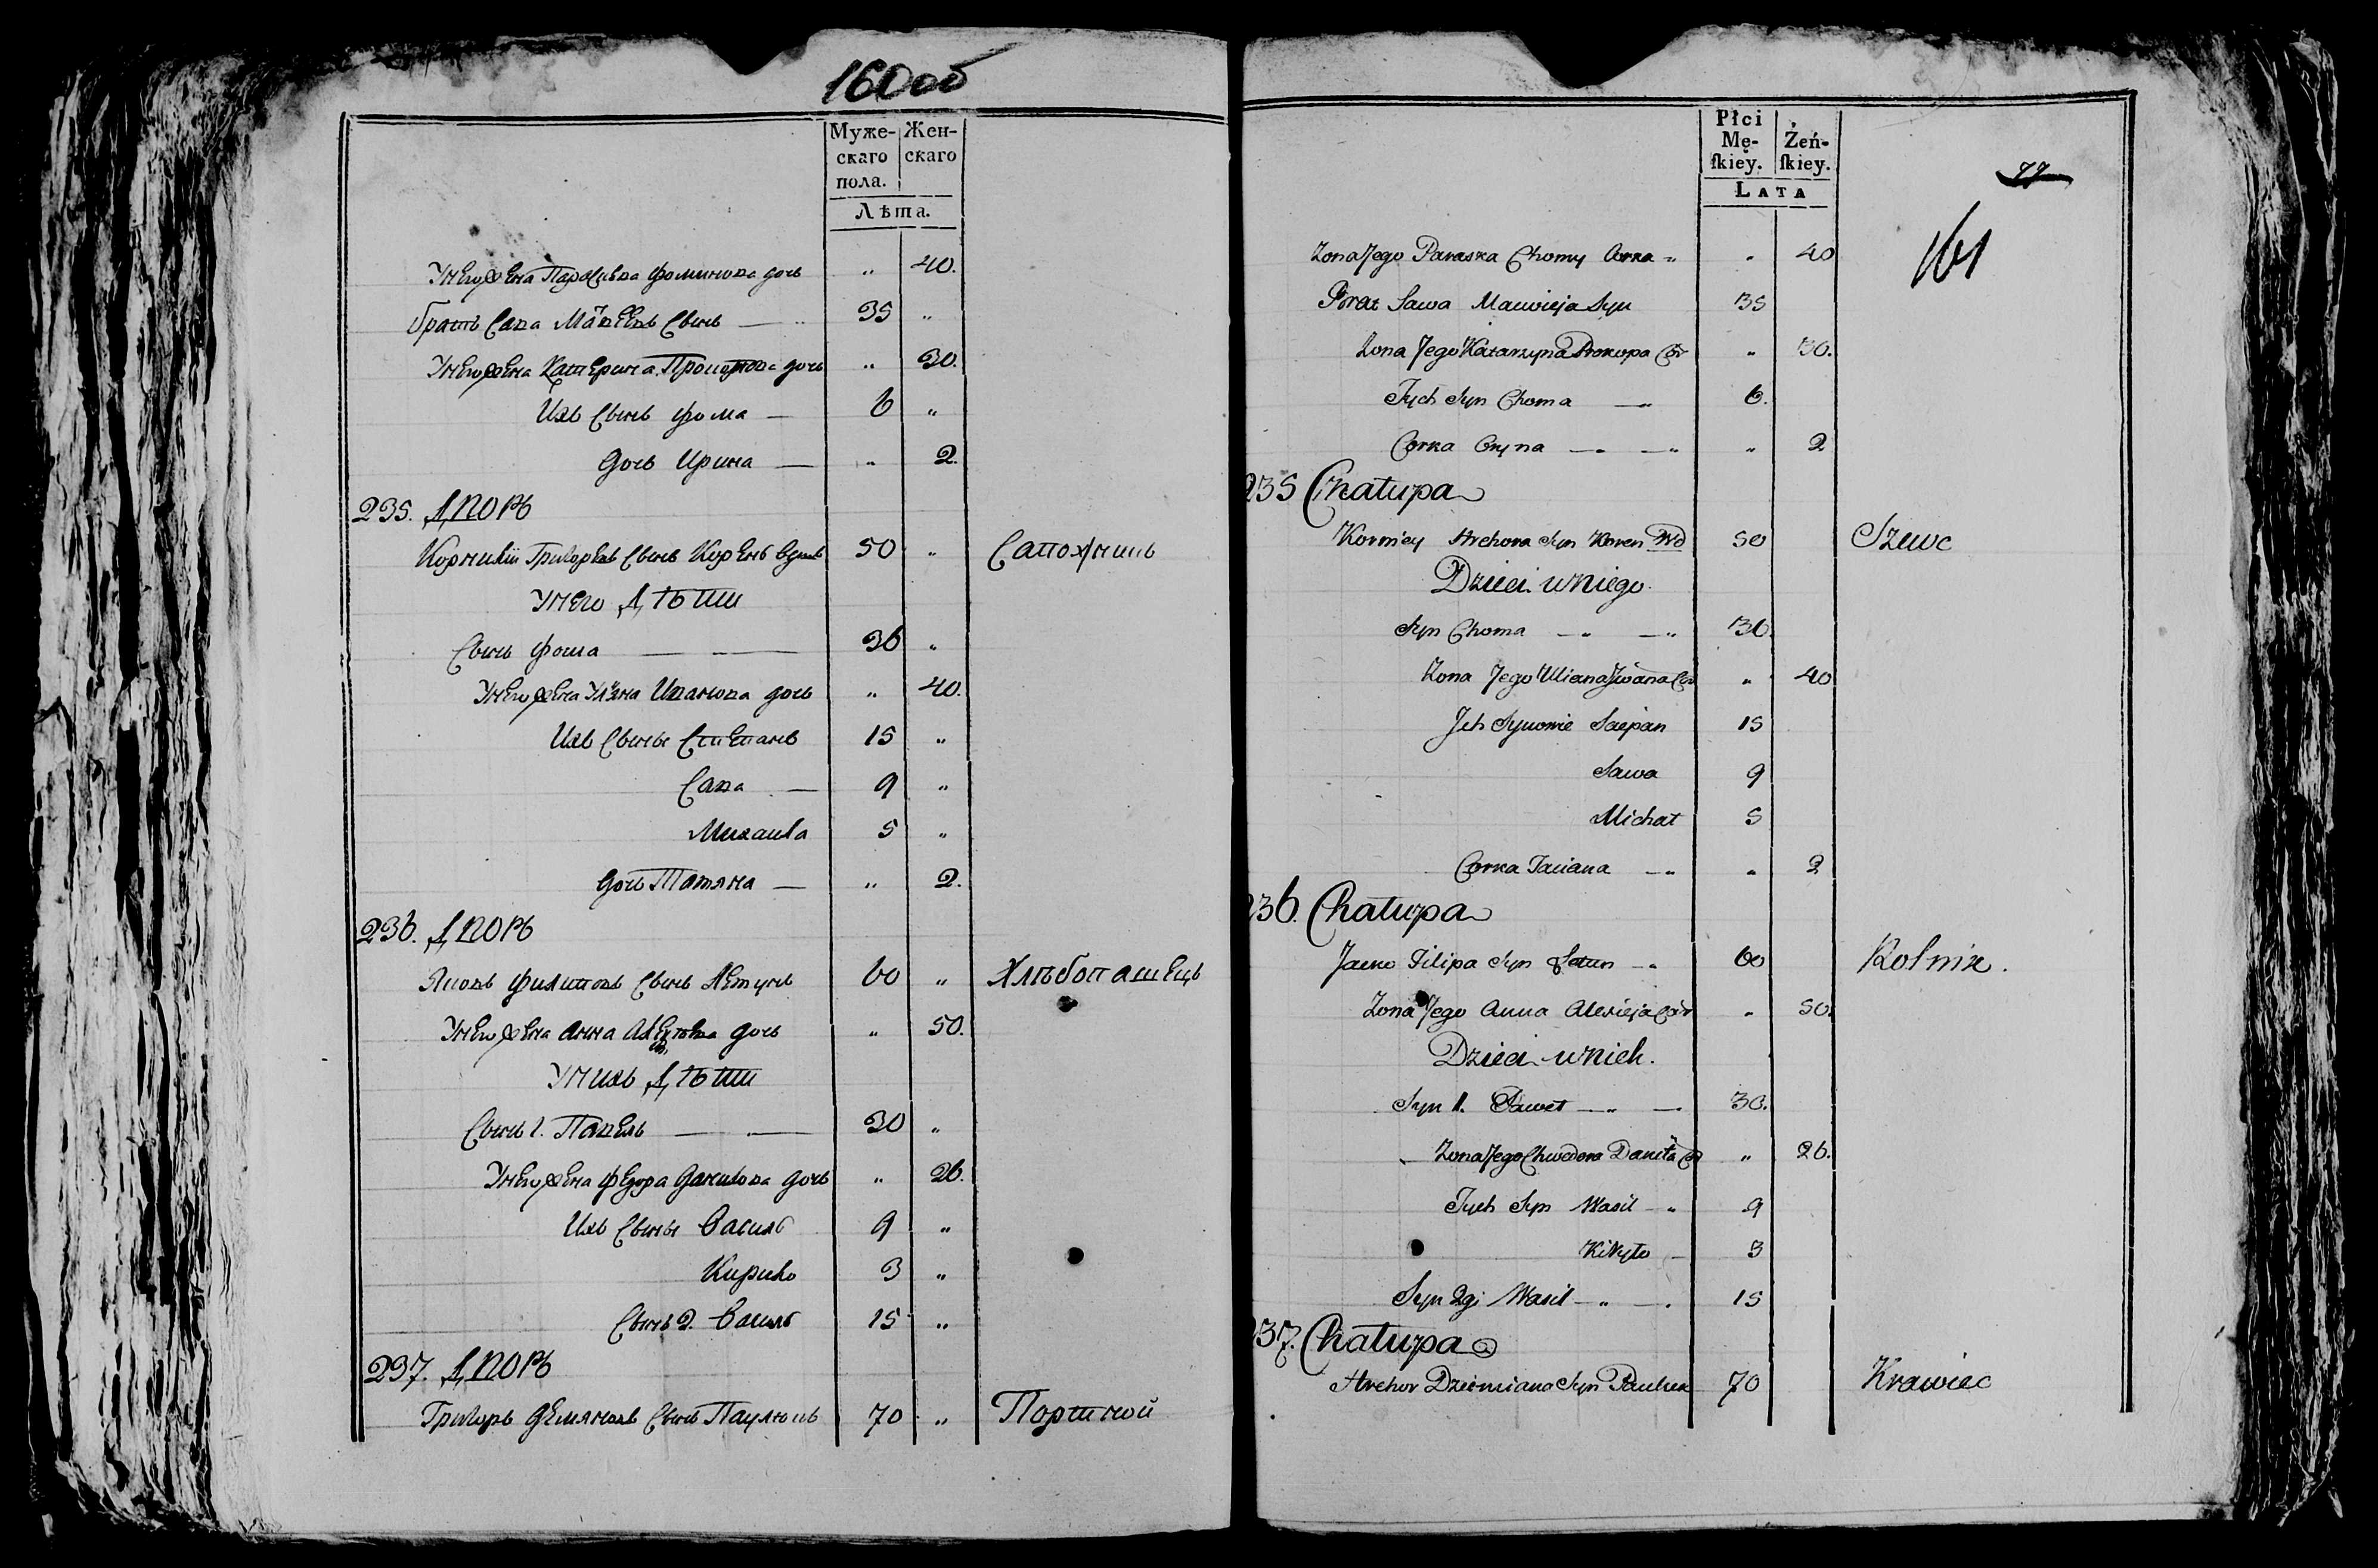 160об
Муже-
скаго
пола.
Жен-
скаго
Лѣта.
У него жена Параскева Фоминова дочь „ 40.
братъ Сава Матвеевъ сынъ — 35 „
У него жена Катерина Прокопова дочь „ 30.
Ихъ сынъ Фома — 6 „
дочь Ирина — „ 2.
235. Дворъ
Корнилій Григорьевъ сынъ Корень вдовъ 50 „ Сапожникъ
У него дѣти
Сынъ Фома — 36 „
У него жена Ульяна Иванова дочь „ 40.
Ихъ сыны Степанъ 15 „
Сава — 9 „
Михаила 5 „
дочь Татяна — „ 2.
236. Дворъ
Яковъ Филиповъ сынъ Летунъ 60 „ Хлѣбопашецъ
У него жена Анна дочь „ 50.
У нихъ дѣти
Сынъ 1. Павелъ — 30 „
У него жена Федора Данилова дочь „ 26.
Ихъ сыны Василь 9 „
Кирило 3 „
Сынъ 2. Василь 15 „
237. Дворъ
Григорь Демяновъ сынъ Паулюкъ 70 „ Портной
Płci
Mę-
ſkiéy.
Żeń-
ſkiey.
LATA
77
161
Zona Jego Paraska Chomy Corka „ „ 40
Brat Sawa Macwieja Syn 35
Zona Jego Katarzyna Prokopa Cor „ 30.
Tych Syn Choma — 6.
Corka Oryna — — „ 2
235 Chałupa
Korniey Hrehora Syn Koren Wd 50 Szewc
Dzieci u niego.
Syn Choma — — 36.
Zona Jego Uliana Jwana Cor „ 40
Jch Synowie Sciepan 15
Sawa 9
Michał 5
Corka Taciana — „ 2
236. Chałupa
Jacko Filipa Syn Letun — 60 Rolnik.
Zona Jego Anna Alexieja Cor „ 50.
Dzieci u nich.
Syn 1. Paweł — — 30.
Zona Jego Chwedora Daniła Cor „ 26.
Tych Syn Wasil — 9
Kiryło — 3
Syn 2gi Wasil — — 15
237. Chałupa
Hrehor Dziemiana Syn Pauluk 70 Krawiec